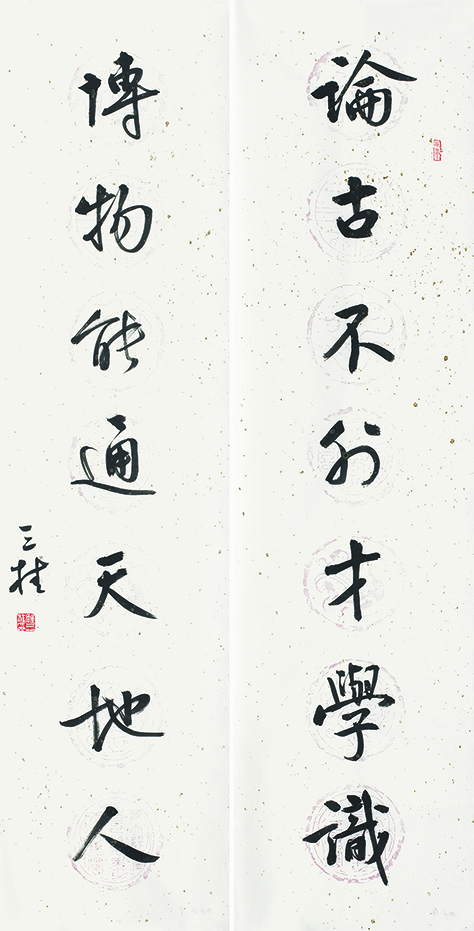 論古不外才學識
博物能通天地人
三桂